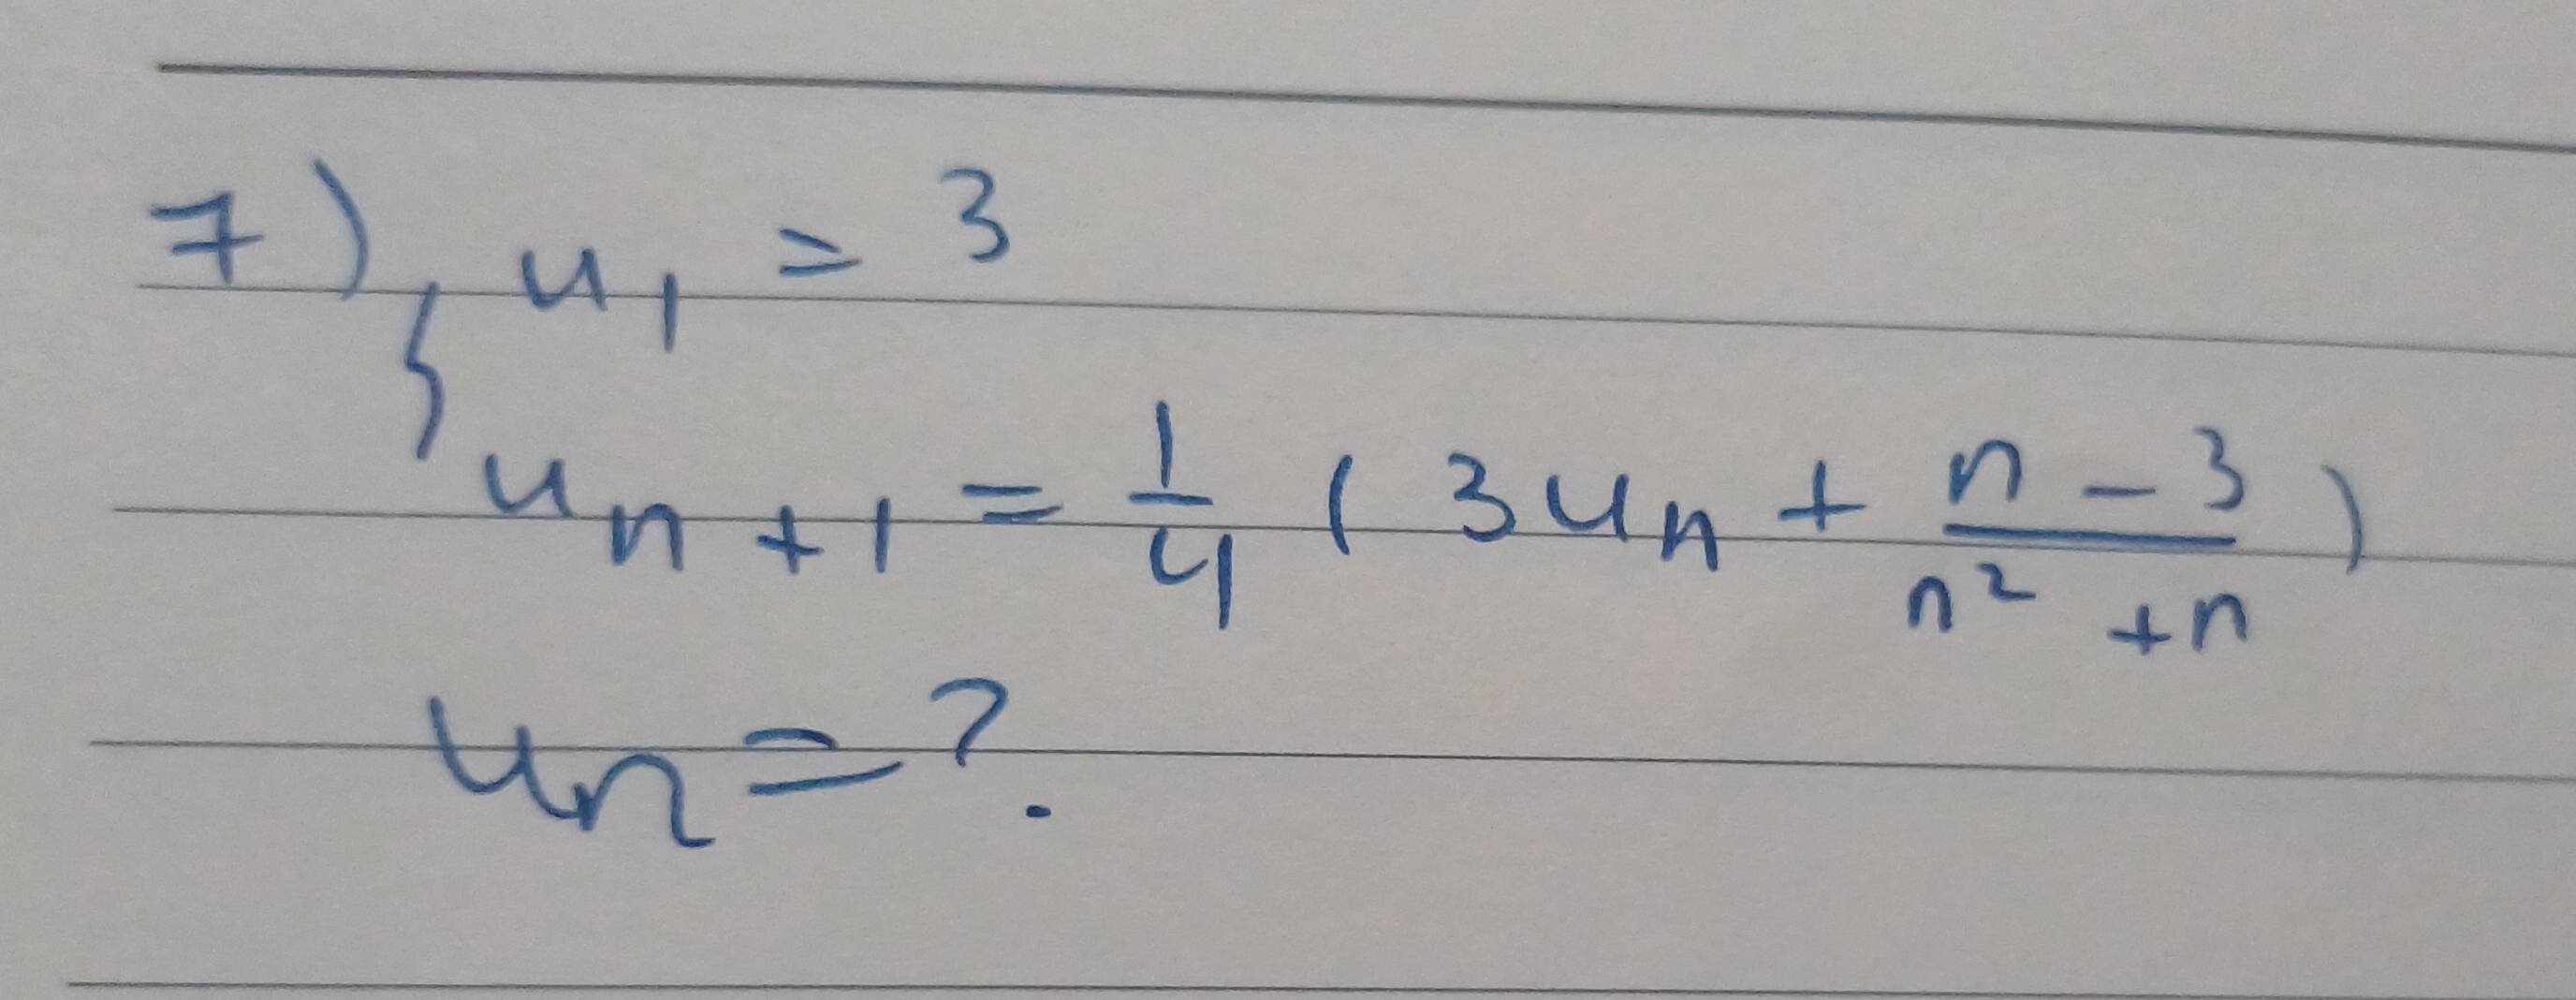 7) { u₁ = 3
uₙ₊₁ = 1/4 ( 3uₙ + (n - 3)/(n² + n) )
uₙ = ?